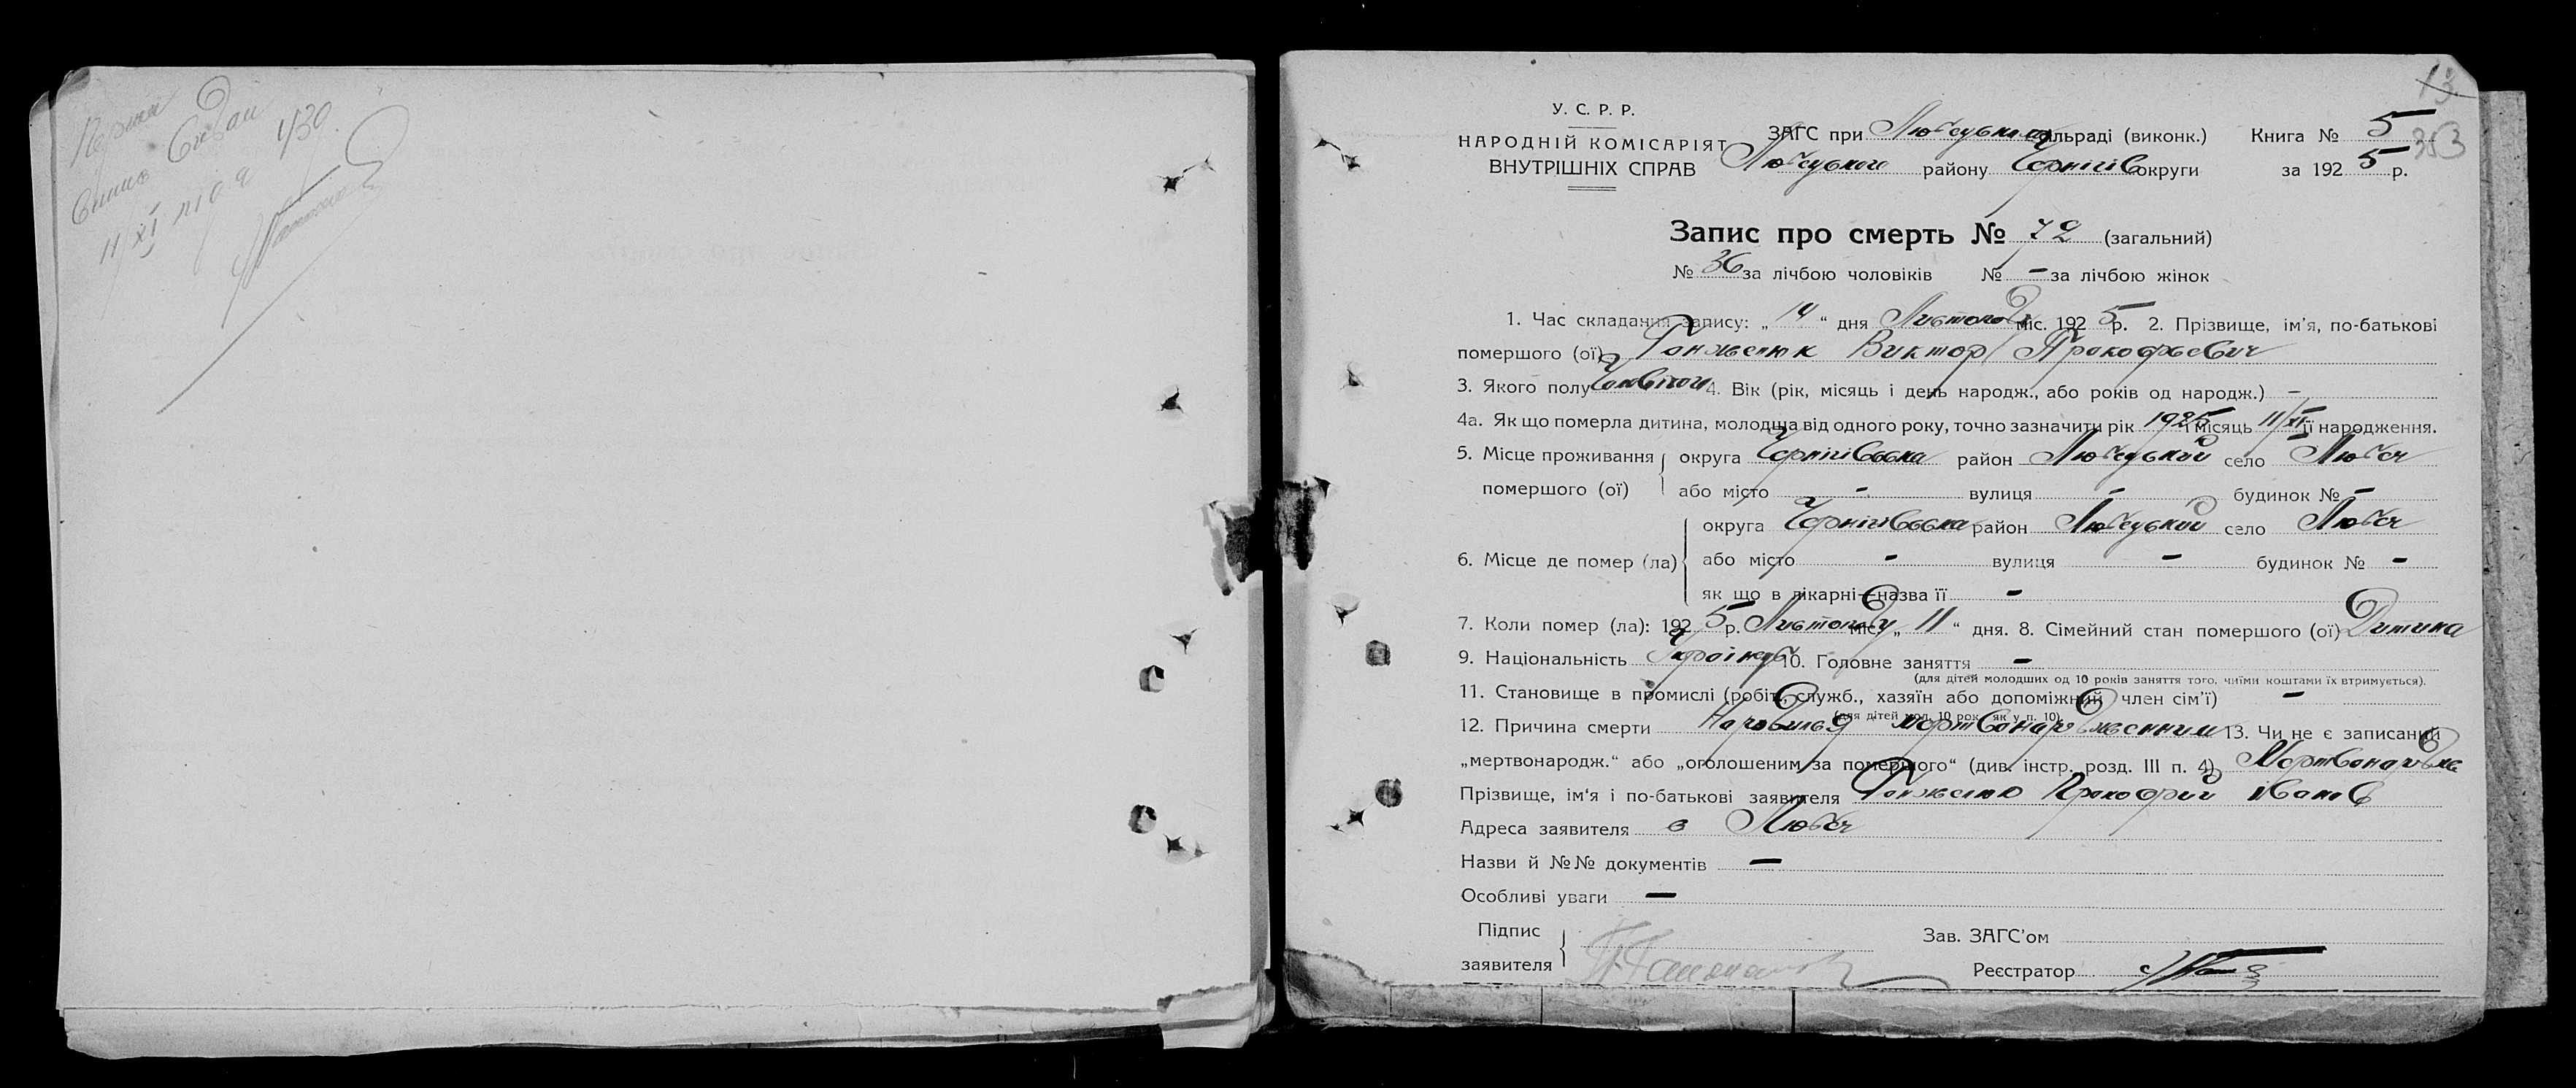 13
353
У. С. Р. Р.
НАРОДНІЙ КОМІСАРІЯТ
ВНУТРІШНІХ СПРАВ
ЗАГС при Любецький сільраді (виконк.) Книга № 5
Любецького району Чернігів округи за 192 5 р.
Запис про смерть № 72 (загальний)
№ 36 за лічбою чоловіків № – за лічбою жінок
1. Час складання запису: „ 14 “ дня Листопад міс. 192 5 р. 2. Прізвище, ім'я, по-батькові
помершого (ої) Виктор Прокофьевич
3. Якого полу 4. Вік (рік, місяць і день народж., або років од народж.) –
4а. Як що померла дитина, молодща від одного року, точно зазначити рік 1925 і місяць 11/XI її народження.
5. Місце проживання помершого (ої) округа Чернігівська район Любецький село Любеч
або місто – вулиця – будинок № –
6. Місце де помер (ла) округа Чернігівська район Любецький село Любеч
або місто – вулиця – будинок № –
як що в лікарні—назва її –
7. Коли помер (ла): 192 5 р. Листопад міс. „ 11 “ дня. 8. Сімейний стан помершого (ої) Дитина
9. Національність Українець 10. Головне заняття –
(для дітей молодших од 10 років заняття того, чиїми коштами їх втримується).
11. Становище в промислі (робітн., служб., хазяїн або допоміжний член сім'ї) –
(для дітей мол. 10 рок. як у п. 10).
12. Причина смерти 13. Чи не є записаний
„мертвонародж.“ або „оголошеним за помершого“ (див. інстр. розд. III п. 4)
Прізвище, ім'я і по-батькові заявителя Прокофий Иванов
Адреса заявителя с Любеч
Назви й №№ документів –
Особливі уваги –
Підпис заявителя
Зав. ЗАГС'ом
Реєстратор